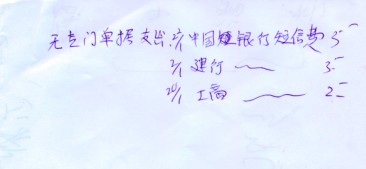 无专门单据支出: 2/1 中国银行短信费 3-
2/1 建行 〃 3-
20/1 工商 〃 2-